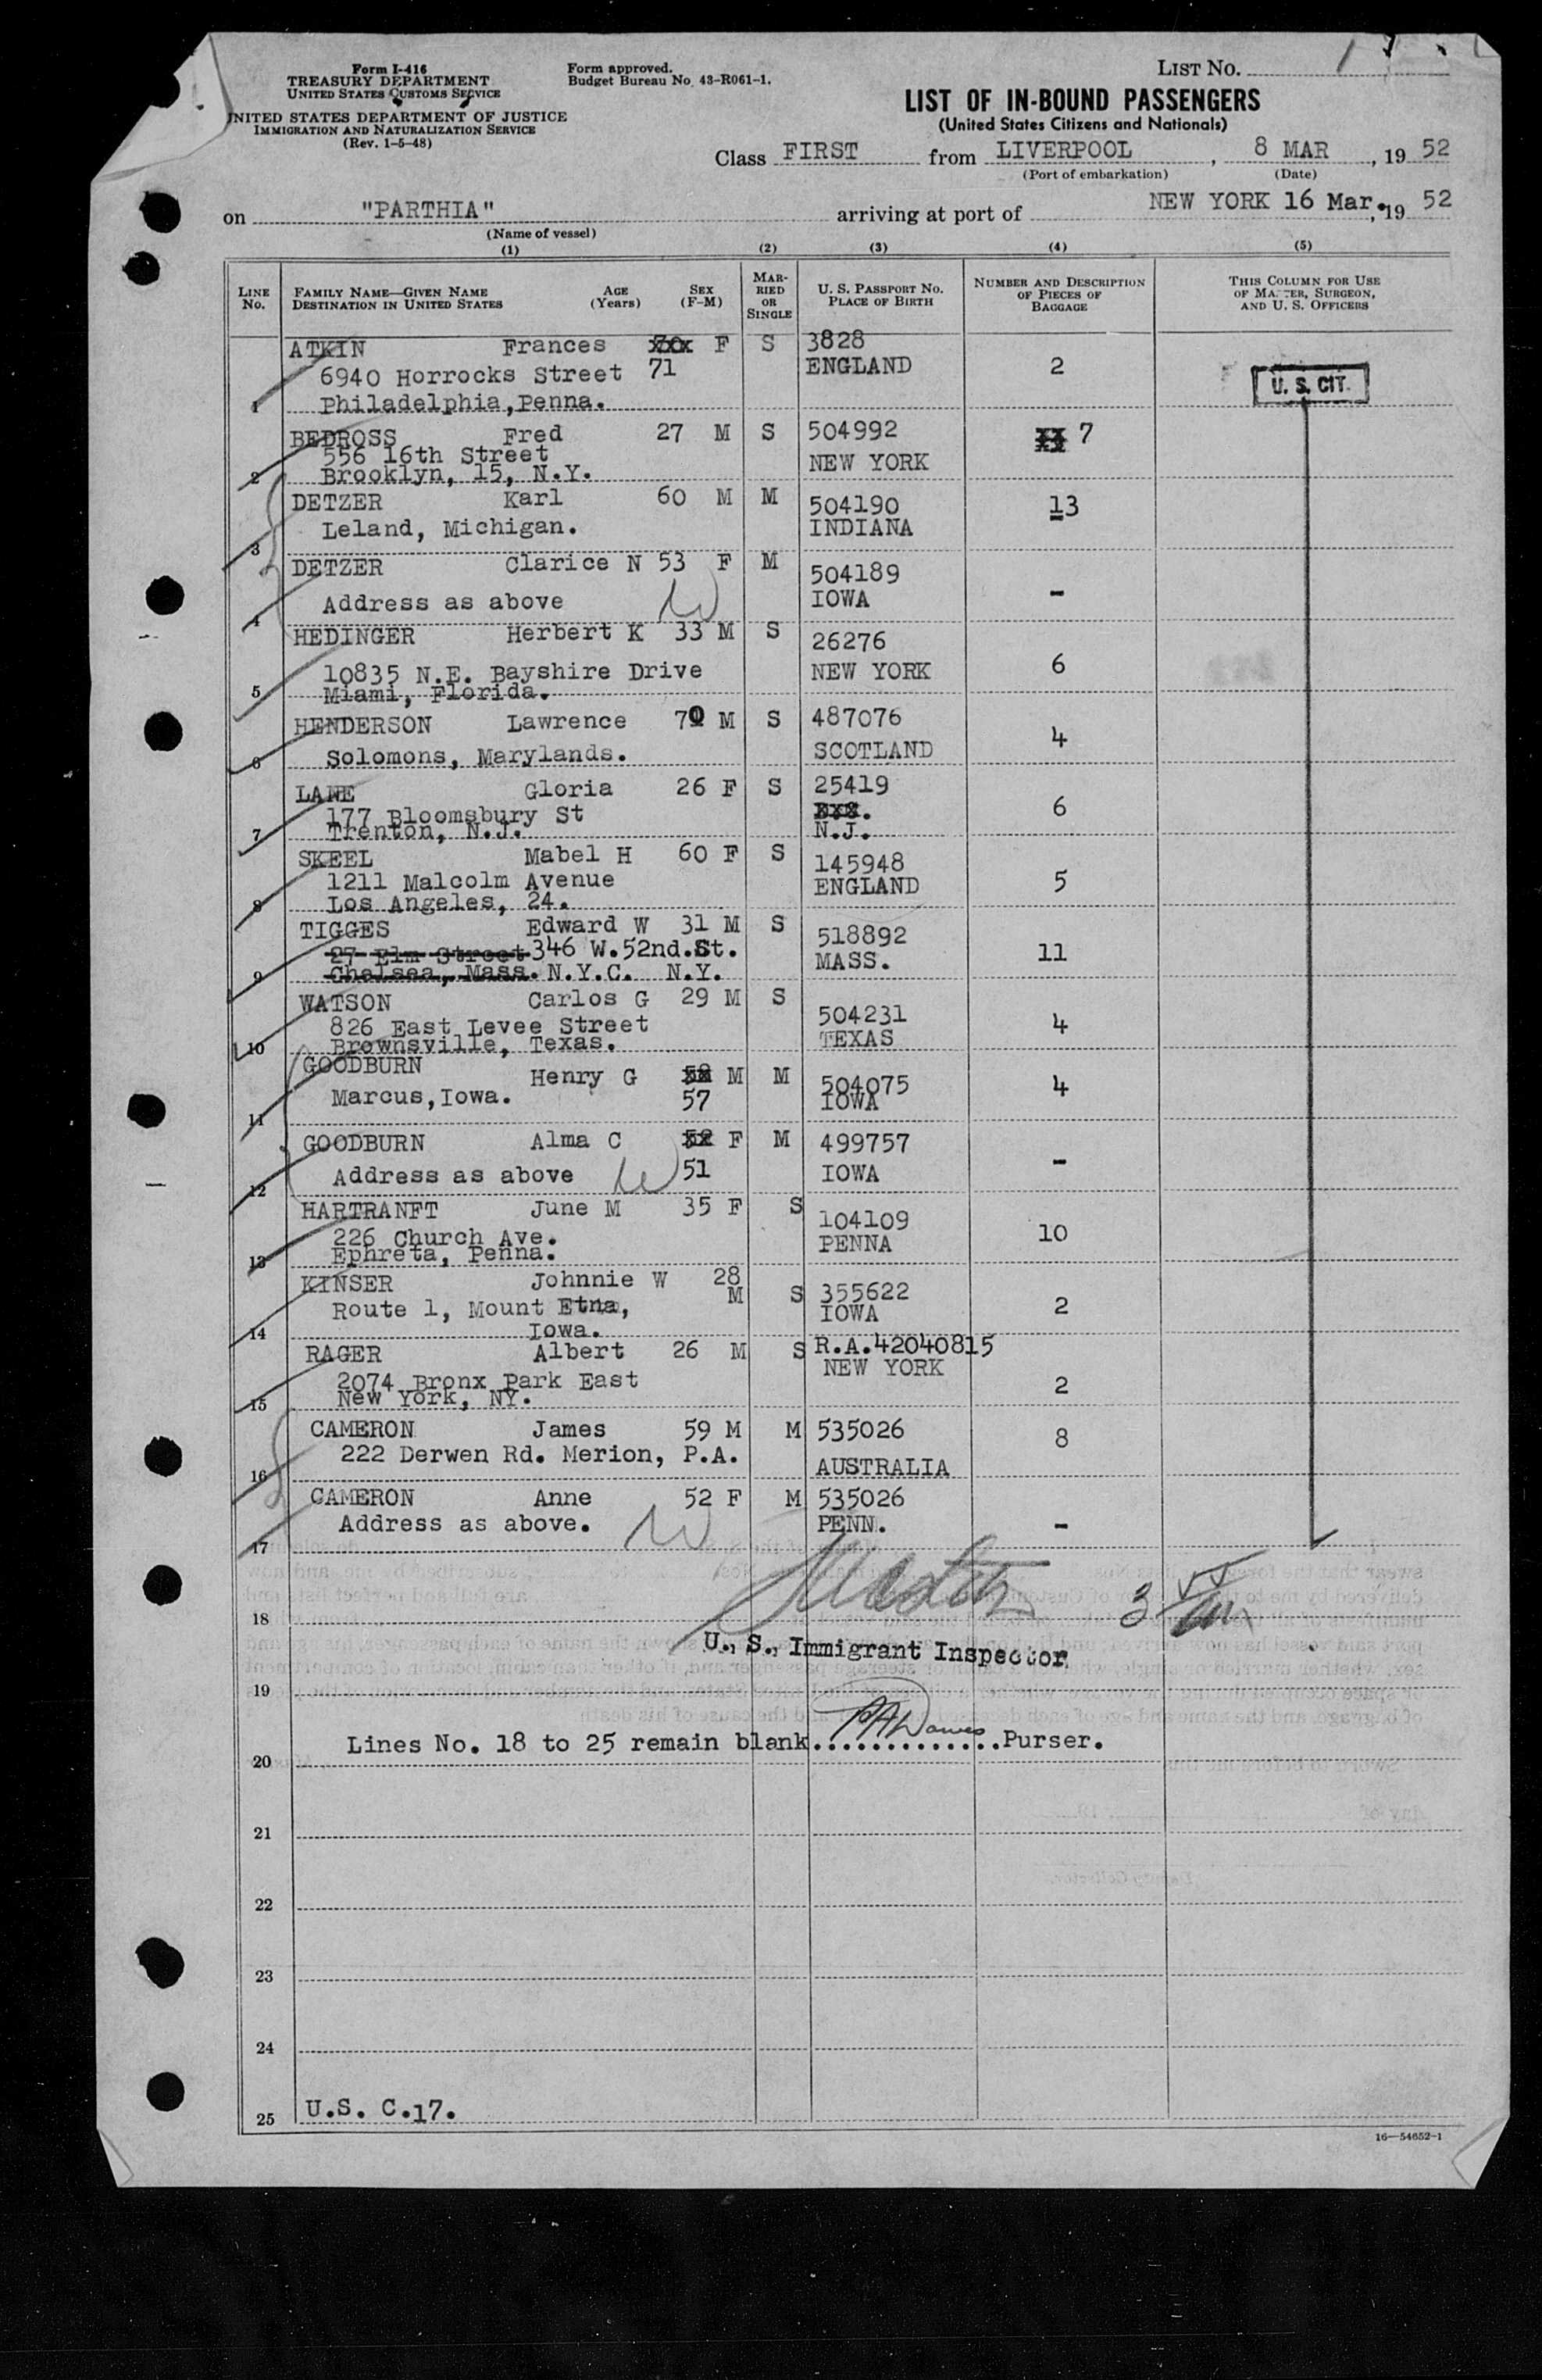 Form I-416
TREASURY DEPARTMENT
UNITED STATES CUSTOMS SERVICE
UNITED STATES DEPARTMENT OF JUSTICE
IMMIGRATION AND NATURALIZATION SERVICE
(Rev. 1-5-48)
Form approved.
Budget Bureau No. 43-R061-1.
LIST No. 1
LIST OF IN-BOUND PASSENGERS
(United States Citizens and Nationals)
Class FIRST from LIVERPOOL, 8 MAR, 19 52
(Port of embarkation) (Date)
on "PARTHIA" arriving at port of NEW YORK 16 Mar., 19 52
(Name of vessel)
(1) (2) (3) (4) (5)
LINE No. FAMILY NAME—GIVEN NAME DESTINATION IN UNITED STATES AGE (Years) SEX (F-M) MARRIED OR SINGLE U. S. PASSPORT NO. PLACE OF BIRTH NUMBER AND DESCRIPTION OF PIECES OF BAGGAGE THIS COLUMN FOR USE OF MASTER, SURGEON, AND U. S. OFFICERS
ATKIN Frances F S 3828
6940 Horrocks Street 71 ENGLAND 2 U. S. CIT.
1 Philadelphia,Penna.
BEDROSS Fred 27 M S 504992 7
556 16th Street NEW YORK
2 Brooklyn, 15, N.Y.
DETZER Karl 60 M M 504190 13
Leland, Michigan. INDIANA
3
DETZER Clarice N 53 F M 504189
Address as above IOWA -
4
HEDINGER Herbert K 33 M S 26276
10835 N.E. Bayshire Drive NEW YORK 6
5 Miami, Florida.
HENDERSON Lawrence 70 M S 487076 4
6 Solomons, Marylands. SCOTLAND
LANE Gloria 26 F S 25419
177 Bloomsbury St 6
7 Trenton, N.J. N.J.
SKEEL Mabel H 60 F S 145948
1211 Malcolm Avenue ENGLAND 5
8 Los Angeles, 24.
TIGGES Edward W 31 M S 518892
27 Elm Street 346 W.52nd.St. MASS. 11
9 Chelsea, Mass. N.Y.C. N.Y.
WATSON Carlos G 29 M S 504231
826 East Levee Street TEXAS 4
10 Brownsville, Texas.
GOODBURN Henry G 58 M M 504075 4
Marcus,Iowa. 57 IOWA
11
GOODBURN Alma C 52 F M 499757
Address as above 51 IOWA -
12
HARTRANFT June M 35 F S 104109
226 Church Ave. PENNA 10
13 Ephreta, Penna.
KINSER Johnnie W 28 M S 355622
Route 1, Mount Etna, IOWA 2
14 Iowa.
RAGER Albert 26 M S R.A.42040815
2074 Bronx Park East NEW YORK 2
15 New York, NY.
CAMERON James 59 M M 535026 8
222 Derwen Rd. Merion, P.A. AUSTRALIA
16
CAMERON Anne 52 F M 535026
Address as above. PENN. -
17
18
U. S. Immigrant Inspector
19
Lines No. 18 to 25 remain blank.............Purser.
20
21
22
23
24
25 U.S. C.17.
16—54652-1